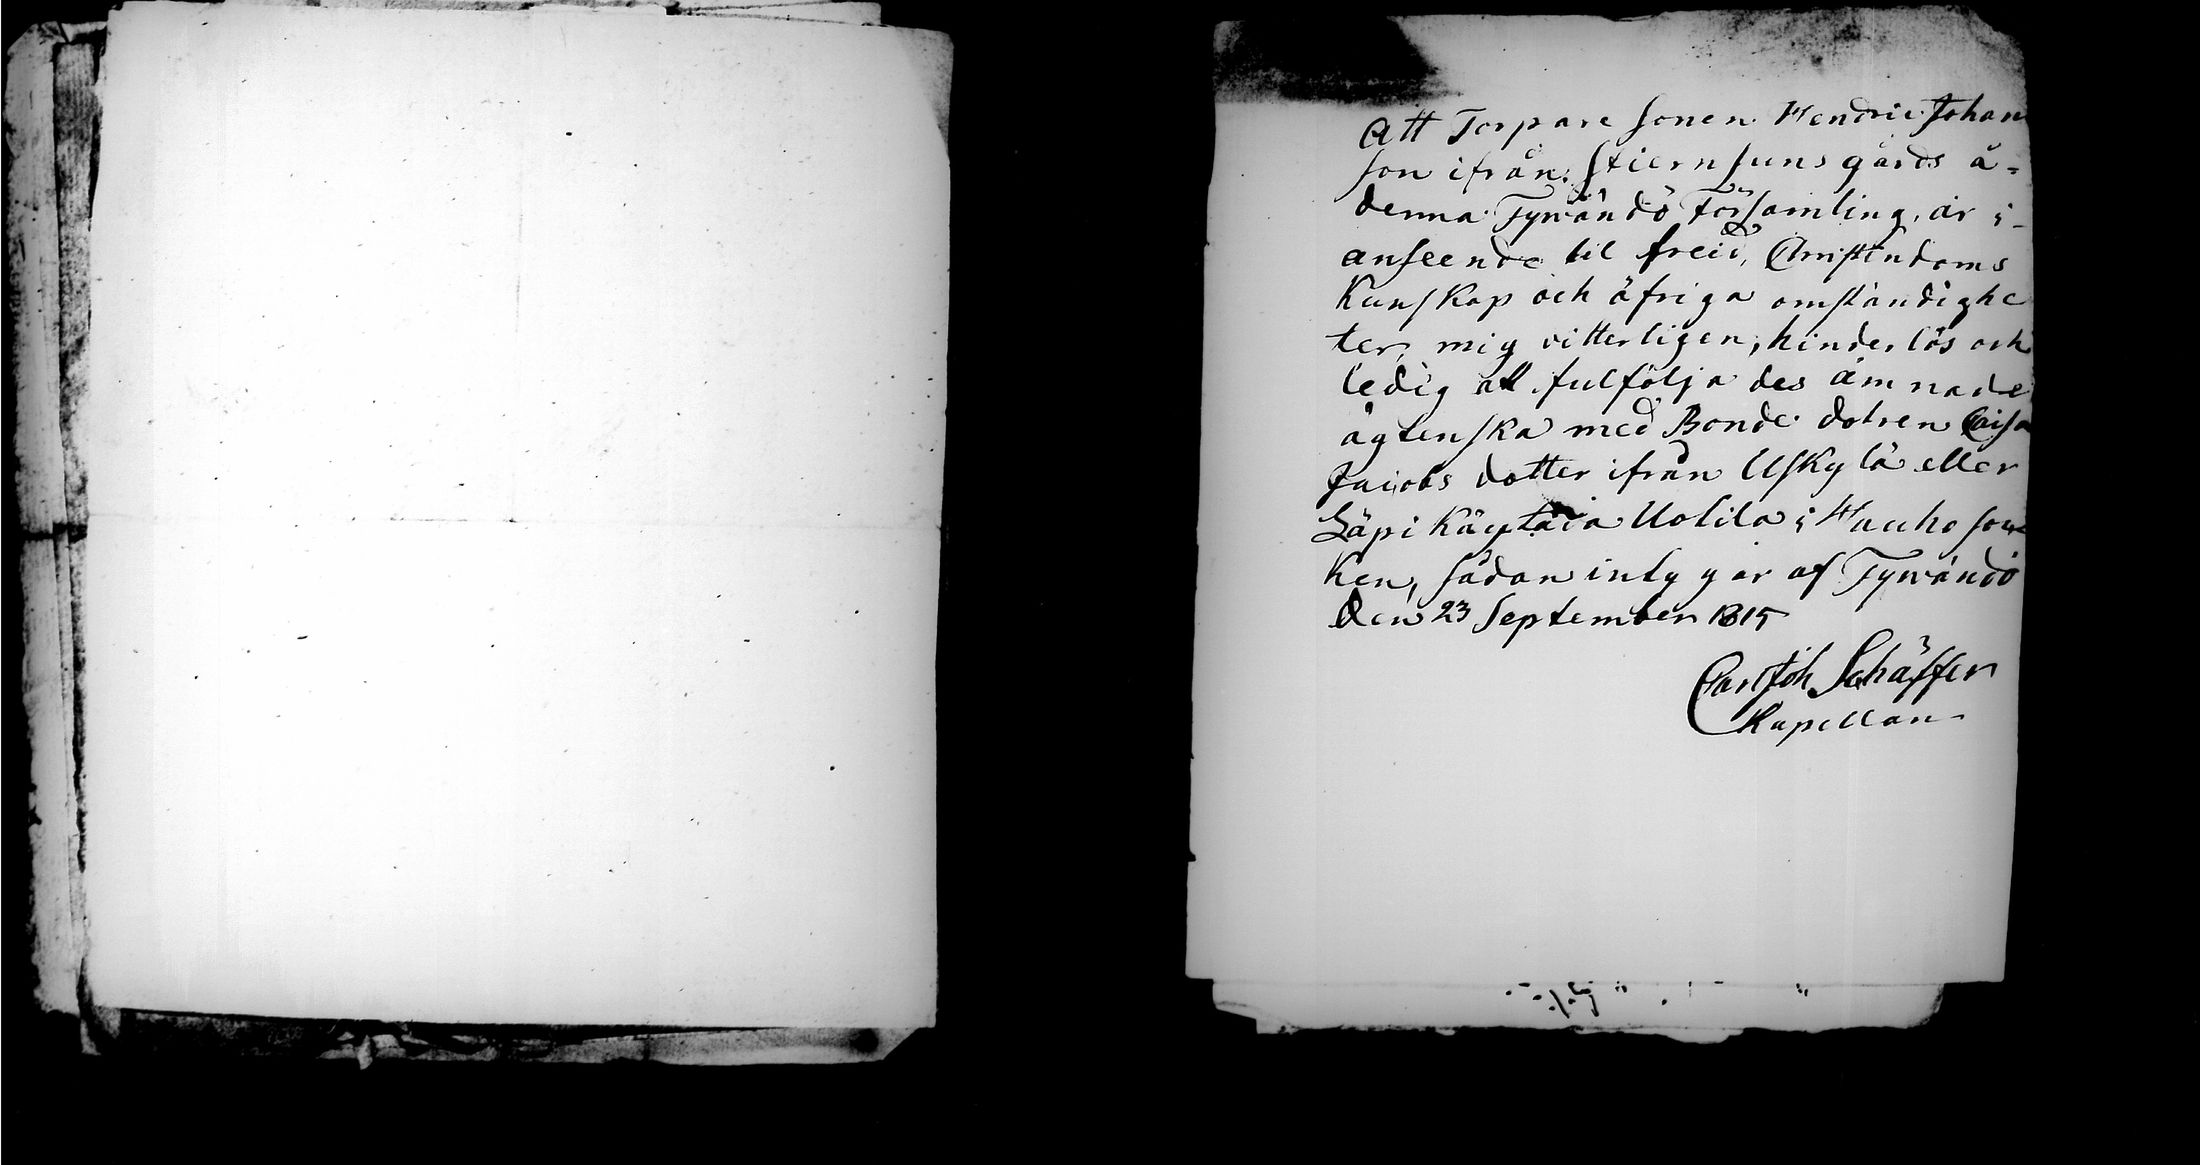 Att Torpare sonen Hendric Johan
son ifrån Stiernsunsgårds å-
denna Tywändö Församling, är i
anseende til freid, Christendoms
Kunskap och öfriga omständighe
ter, mig vitterligen, hinderlös och
ledig att fulfölja des ämnade
ägtenska med Bonde dotren Caisa
Jacobs dotter ifrån Uskylä eller
Uolila i Hauho sou
ken, sådan intygar af Tywändö
den 23 September 1815
Carl Joh Schäffer
Kapellan